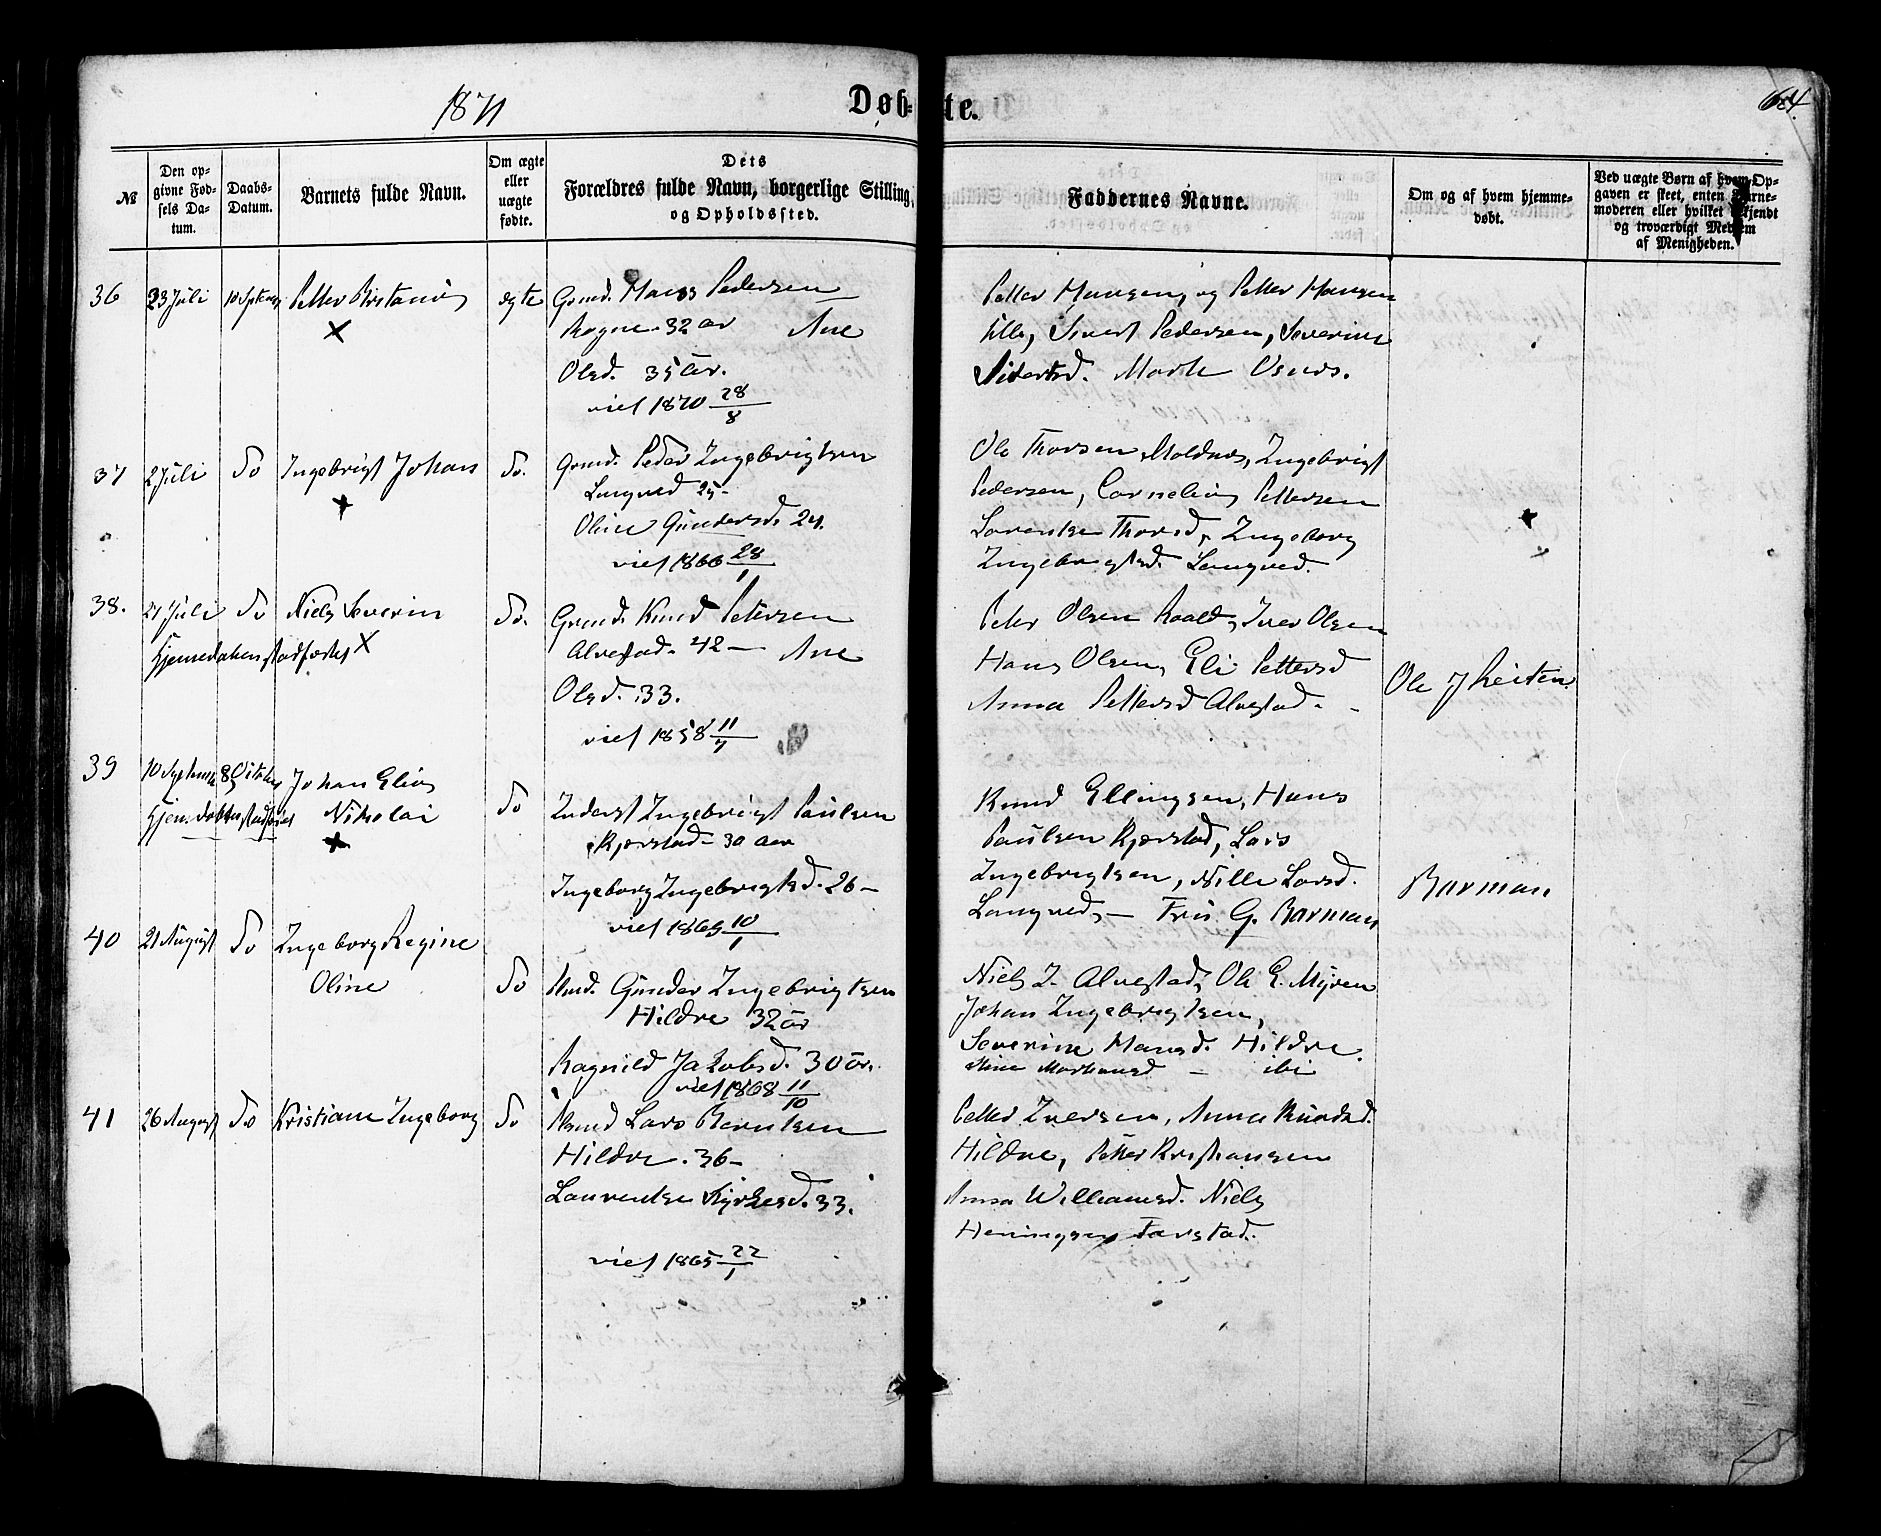 1871
Døb-te.
64.
№
Den op-
givne Fød-
sels Da-
tum.
Daabs-
Datum.
Barnets fulde Navn.
Om ægte
eller
uægte
fødte.
Dets
Forældres fulde Navn, borgerlige Stilling,
og Opholdssted.
Faddernes Navne.
Om og af hvem hjemme-
døbt.
Ved uægte Børn af hvem Op-
gaven er skeet, enten Barne-
moderen eller hvilket bekjendt
og troværdigt Medlem
af Menigheden.
36 23 Juli 10 Septemb Petter Kristian egte Grmd. Hans Pedersen
Rogne 32 Aar Ane
Olsd. 35 Aar.
viet 1870 28/8
Petter Hansen, og Petter Hansen
Lille, Sivert Pedersen, Severine
Sivertsd. Marte
37 2 Juli Do Ingebrigt Johan Do. Grmd. Peder Ingebrigtsen
Longved 25-
Oline Gundersd. 24.
viet 1866 28/1
Ole Thorsen Moldnes, Ingebrigt
Pedersen, Cornelius Pettersen
Lorentse Thorsd, Ingeborg
Ingebrigtsd. Longved.
38. 21 Juli Do Niels Severin Do. Grmd. Knud Petersen
Hjemedaaben stadfæstet
Alvestad. 42 — Ane
Olsd. 33.
viet 1858 11/7
Peter Olsen Roald, Iver Olsen
Hans Olsen, Eli Pettersd
Anna Pettersd Alvestad. -
Ole J Reiten.
39 10 Septemb 8 Oktober Johan Elias
Hjemdaaben stadfæstet Nikolai
Do Inderst Ingebrigt Paulsen
Kjærstad - 30 Aar
Ingeborg Ingebrigtsd. 26 —
viet 1865 10/1
Knud Ellingsen, Hans
Paulsen Kjærstad, Lars
Ingebrigtsen, Nille Larsd.
Longved, — Fru G. Barman
Barman
40 21 August Do Ingeborg Regine
Oline
Do Hmd. Gunder Ingebrigtsen
Hildre 32 Aar
Ragnild Jakobsd. 30 Aar.
viet 1868 11/10
Niels I. Alvestad, Ole E. Myren
Johan Ingebrigtsen,
Severine Hansd. Hildre.
Stine — ibi
41 26 August Do Kristiane Ingeborg Do Hmd Lars Berntsen
Hildre. 36 —
Laurentse 33.
viet 1865 22/1
Petter Iversen, Anna Knudsd.
Hildre, Petter Kristiansen
Anna Williamsd. Niels
Heningsen Farstad.